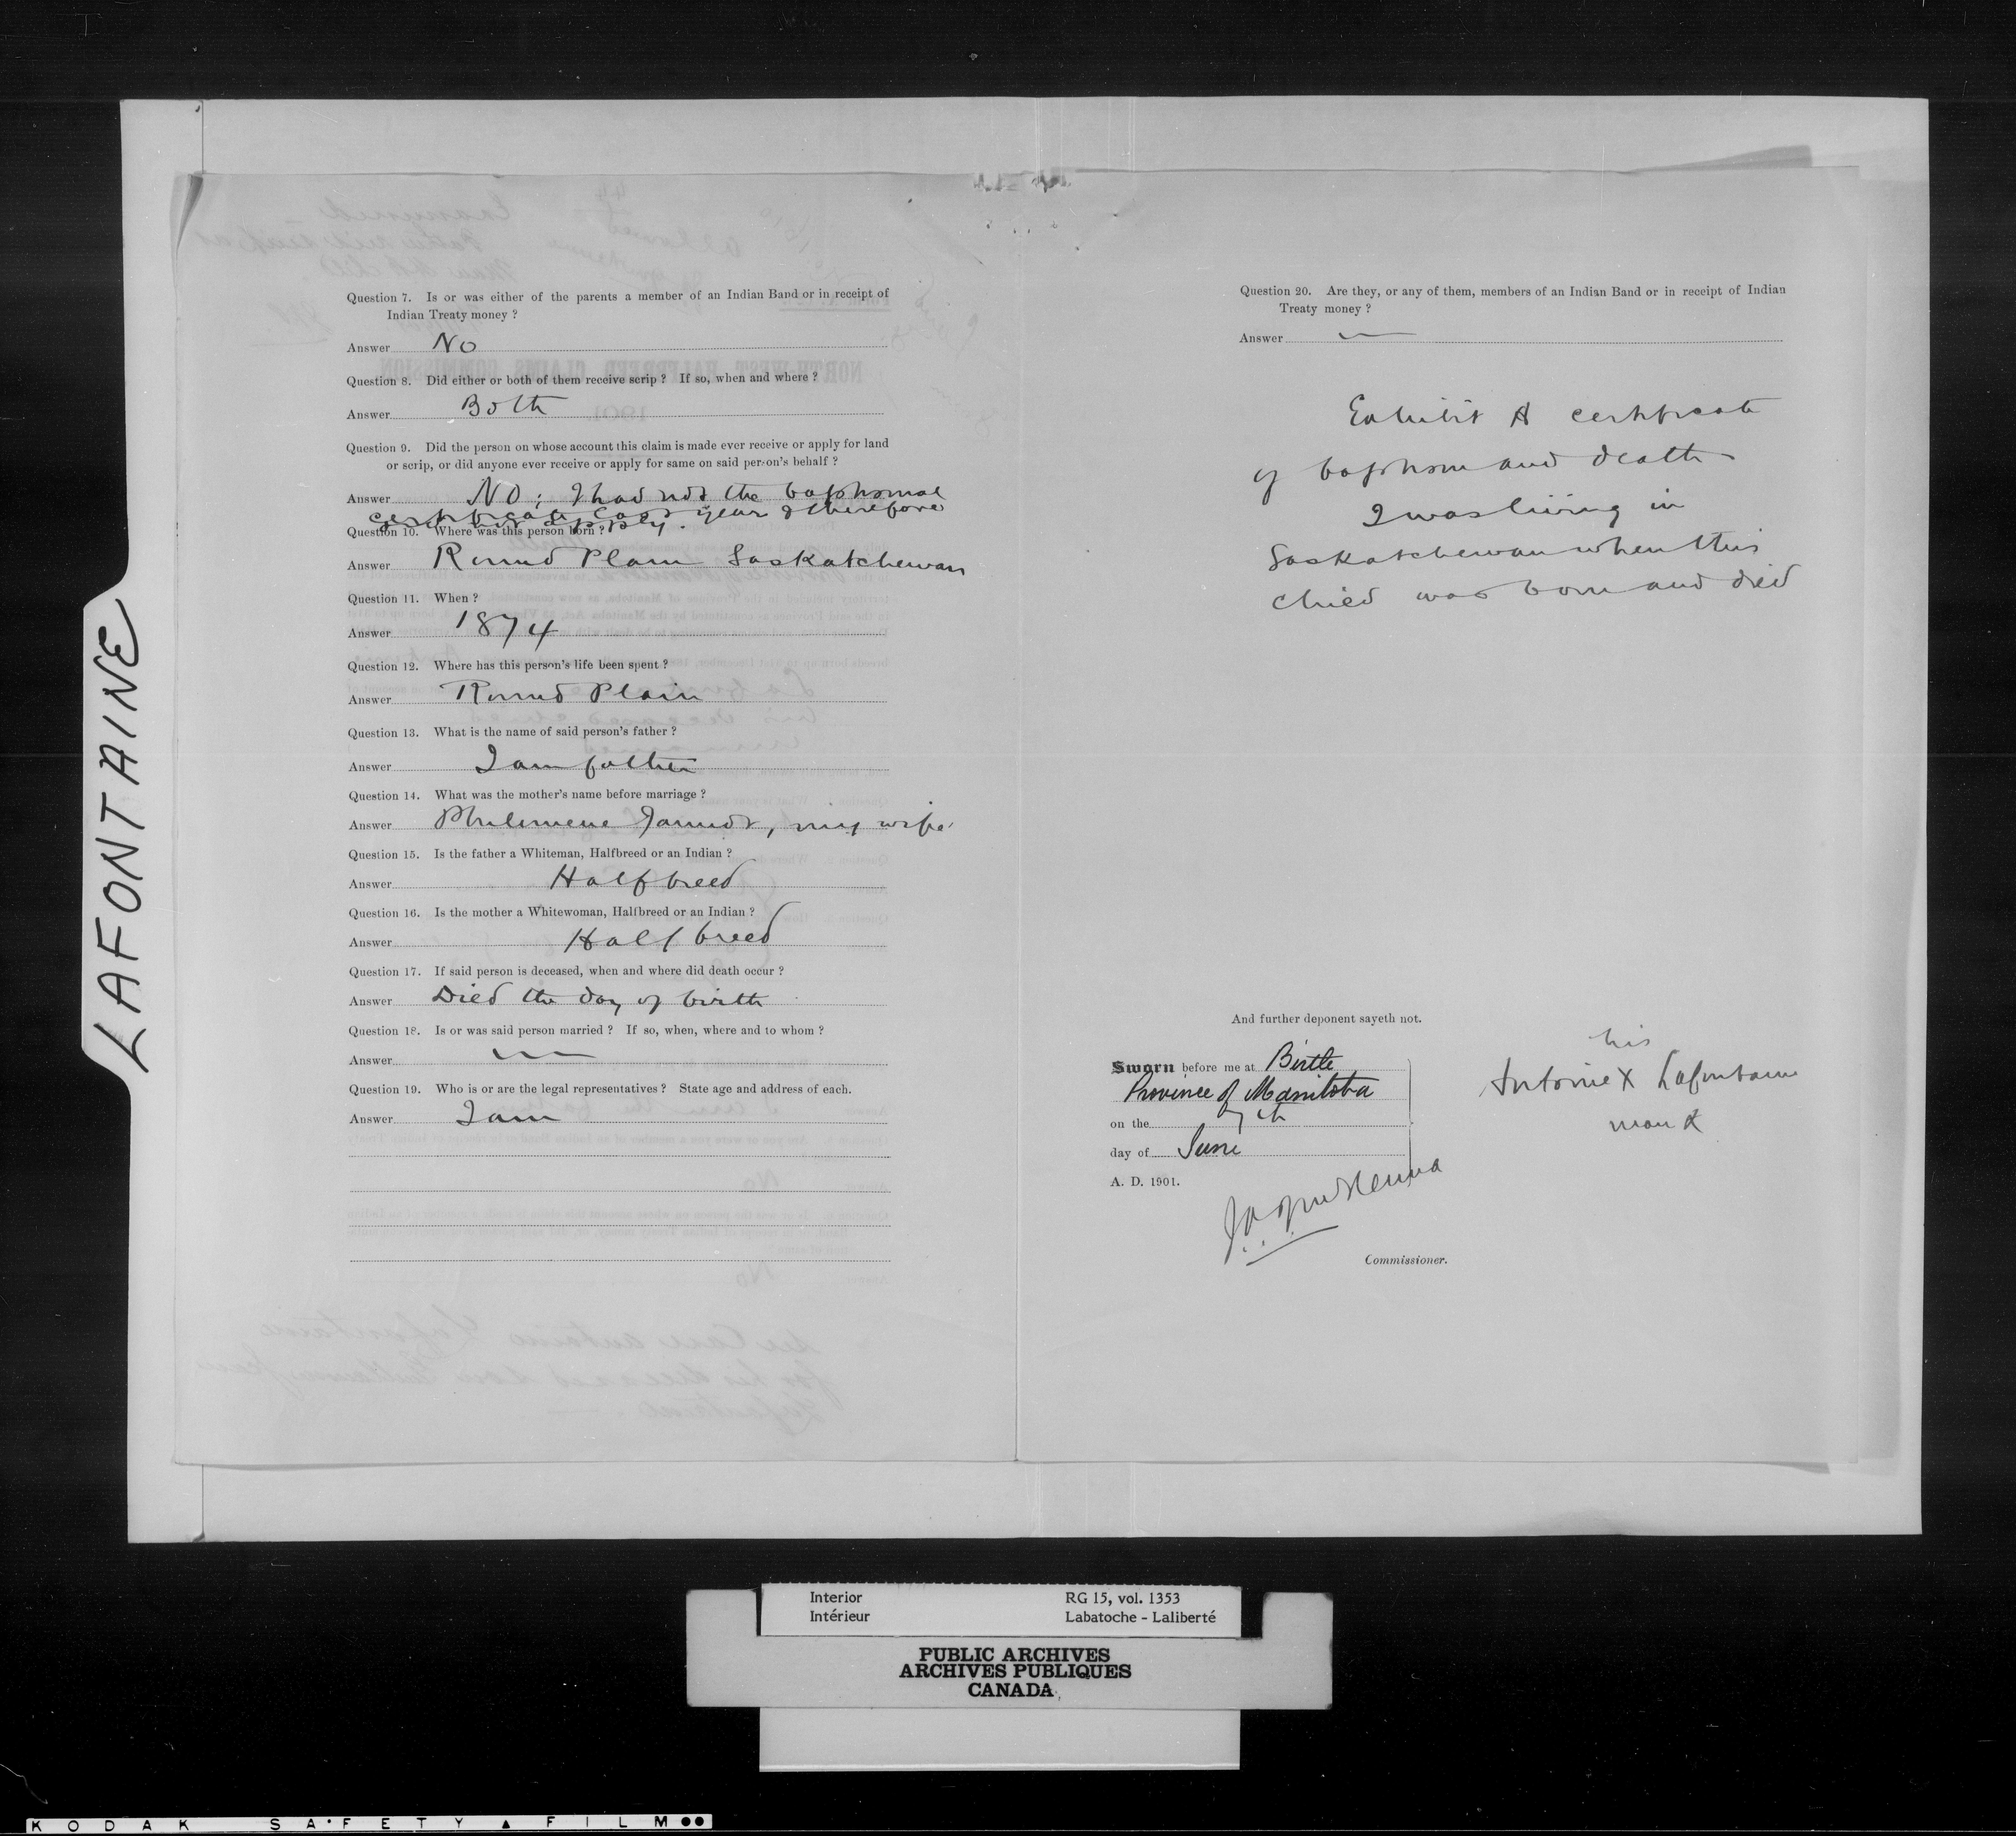 LAFONTAINE
Question 7. Is or was either of the parents a member of an Indian Band or in receipt of
Indian Treaty money ?
Answer No
Question 8. Did either or both of them receive scrip ? If so, when and where ?
Answer Both
Question 9. Did the person on whose account this claim is made ever receive or apply for land
or scrip, or did anyone ever receive or apply for same on said person's behalf ?
Answer No; I had not the baptismal
certificate last year & therefore
did not apply.
Question 10. Where was this person born ?
Answer Round Plain Saskatchewan
Question 11. When ?
Answer 1874
Question 12. Where has this person's life been spent ?
Answer Round Plain
Question 13. What is the name of said person's father ?
Answer I am father
Question 14. What was the mother's name before marriage ?
Answer Philomene , my wife
Question 15. Is the father a Whiteman, Halfbreed or an Indian ?
Answer Halfbreed
Question 16. Is the mother a Whitewoman, Halfbreed or an Indian ?
Answer Half breed
Question 17. If said person is deceased, when and where did death occur ?
Answer Died the day of birth
Question 18. Is or was said person married ? If so, when, where and to whom ?
Answer
Question 19. Who is or are the legal representatives ? State age and address of each.
Answer I am
Question 20. Are they, or any of them, members of an Indian Band or in receipt of Indian
Treaty money ?
Answer
Exhibit A certificate
of baptism and death
I was living in
Saskatchewan when this
child was born and died
And further deponent sayeth not.
Sworn before me at Birtle
Province of Manitoba
on the 7th
day of June
A. D. 1901.
his
Antoine X Lafontaine
mark
Commissioner.
Interior
Intérieur
RG 15, vol. 1353
Labatoche - Laliberté
PUBLIC ARCHIVES
ARCHIVES PUBLIQUES
CANADA
KODAK SAFETY ▲ FILM ●●